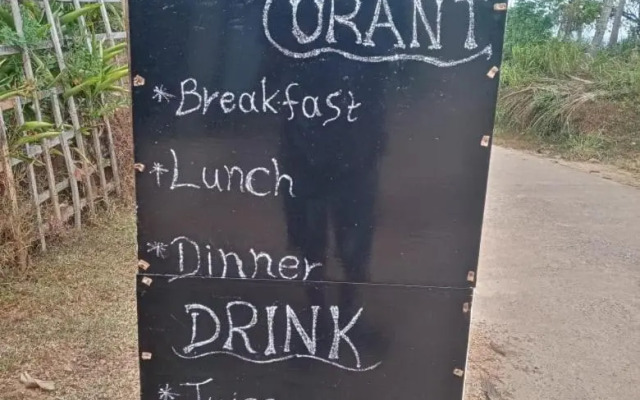 * Breakfast
* Lunch
* Dinner
DRINK